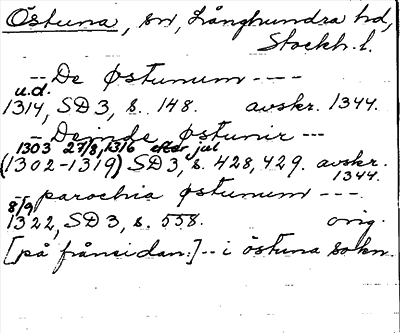 Östuna, sn, Långhundra hd,
Stockh. l.
-- De Østunum ----
u.d.
1314, SD 3, s. 148. avskr. 1344.
-- Deinde østunir ---
1303 27/8, 13/6 efter jul
(1302-1319) SD 3, s. 428, 429. avskr. 1344.
-- parochia østunum ---
8/9
1322, SD 3, s. 558. orig.
[på frånsidan:] -- i östuna sokn.